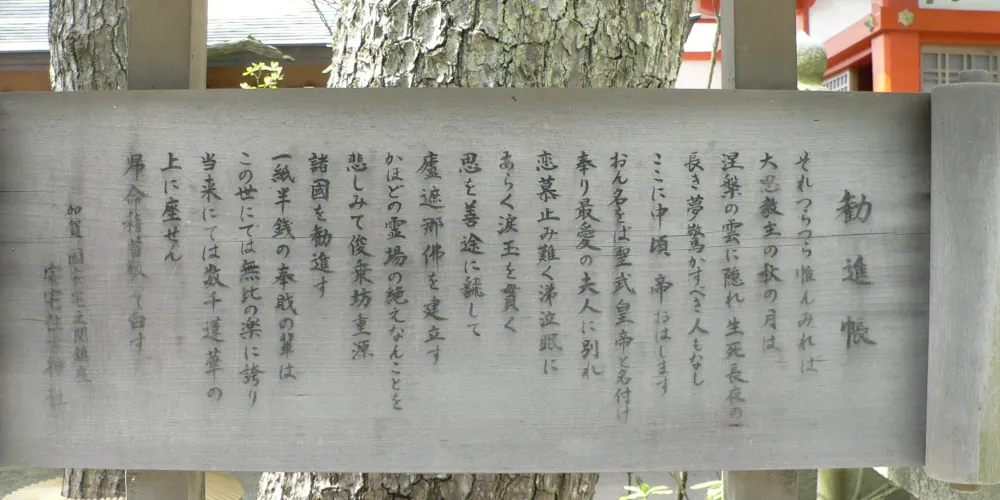 勧進帳
それつらつら惟んみれば
大恩教主の秋の月は
涅槃の雲に隠れ生死長夜の
長き夢驚かすべき人もなし
ここに中頃 帝おはします
おん名をば聖武皇帝と名付け
奉り最愛の夫人に別れ
恋慕止み難く涕泣眼に
あらく涙玉を貫く
思を善途に飜して
盧遮那佛を建立す
かほどの霊場の絶えなんことを
悲しみて俊乗坊重源
諸國を勧進す
一紙半銭の奉財の輩は
この世にては無比の楽に誇り
当来にては数千蓮華の
上に座せん
帰命稽首敬て白す
加賀國安宅之関鎮座
安宅住吉神社